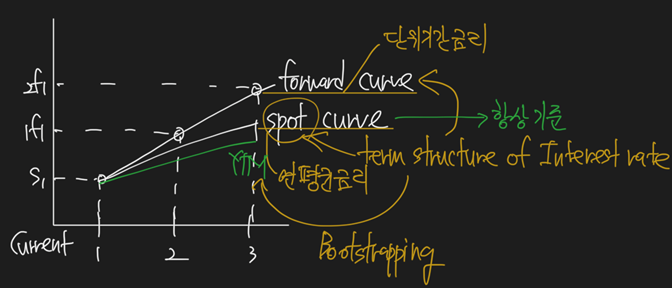 단위기간금리
₂f₁
forward curve
₁f₁
spot curve
항상 기준
term structure of Interest rate
S₁
YTM
연평균금리
Current
1
2
3
Bootstrapping